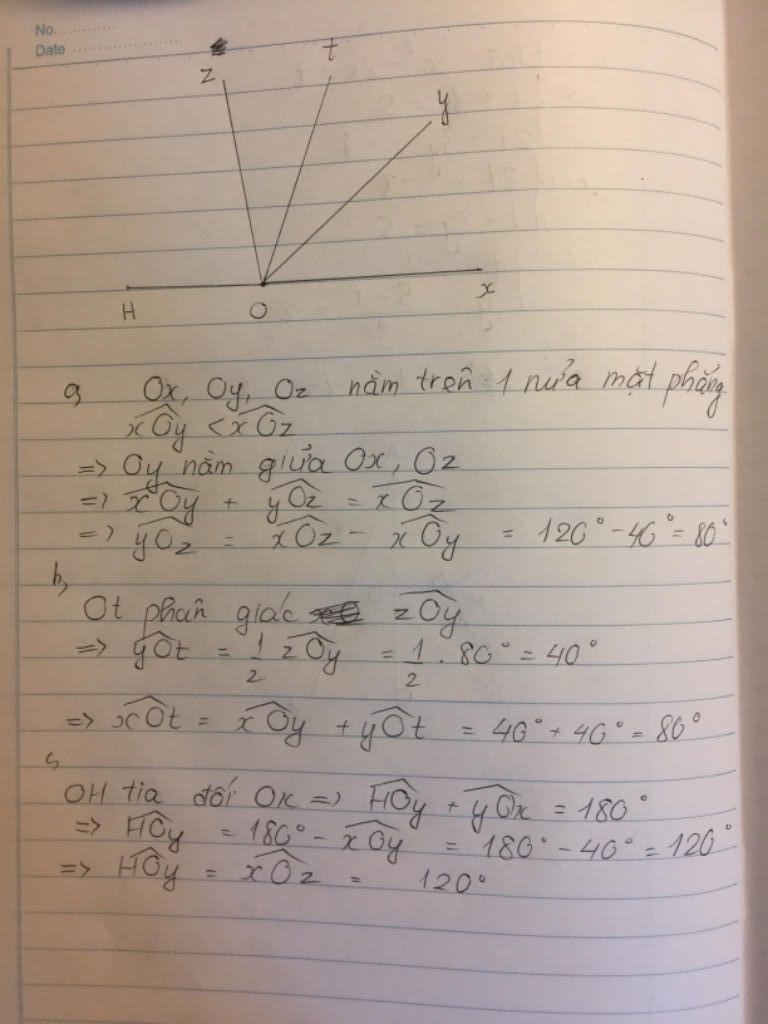 No. ...........
Date .......................
z t y
H O x
a, Ox, Oy, Oz nằm trên 1 nửa mặt phẳng
xOy < xOz
=> Oy nằm giữa Ox, Oz
=> xOy + yOz = xOz
=> yOz = xOz - xOy = 120° - 40° = 80°
b,
Ot phân giác zOy
=> yOt = 1/2 zOy = 1/2 . 80° = 40°
=> xOt = xOy + yOt = 40° + 40° = 80°
c,
OH tia đối Ox => HOy + yOx = 180°
=> HOy = 180° - xOy = 180° - 40° = 120°
=> HOy = xOz = 120°